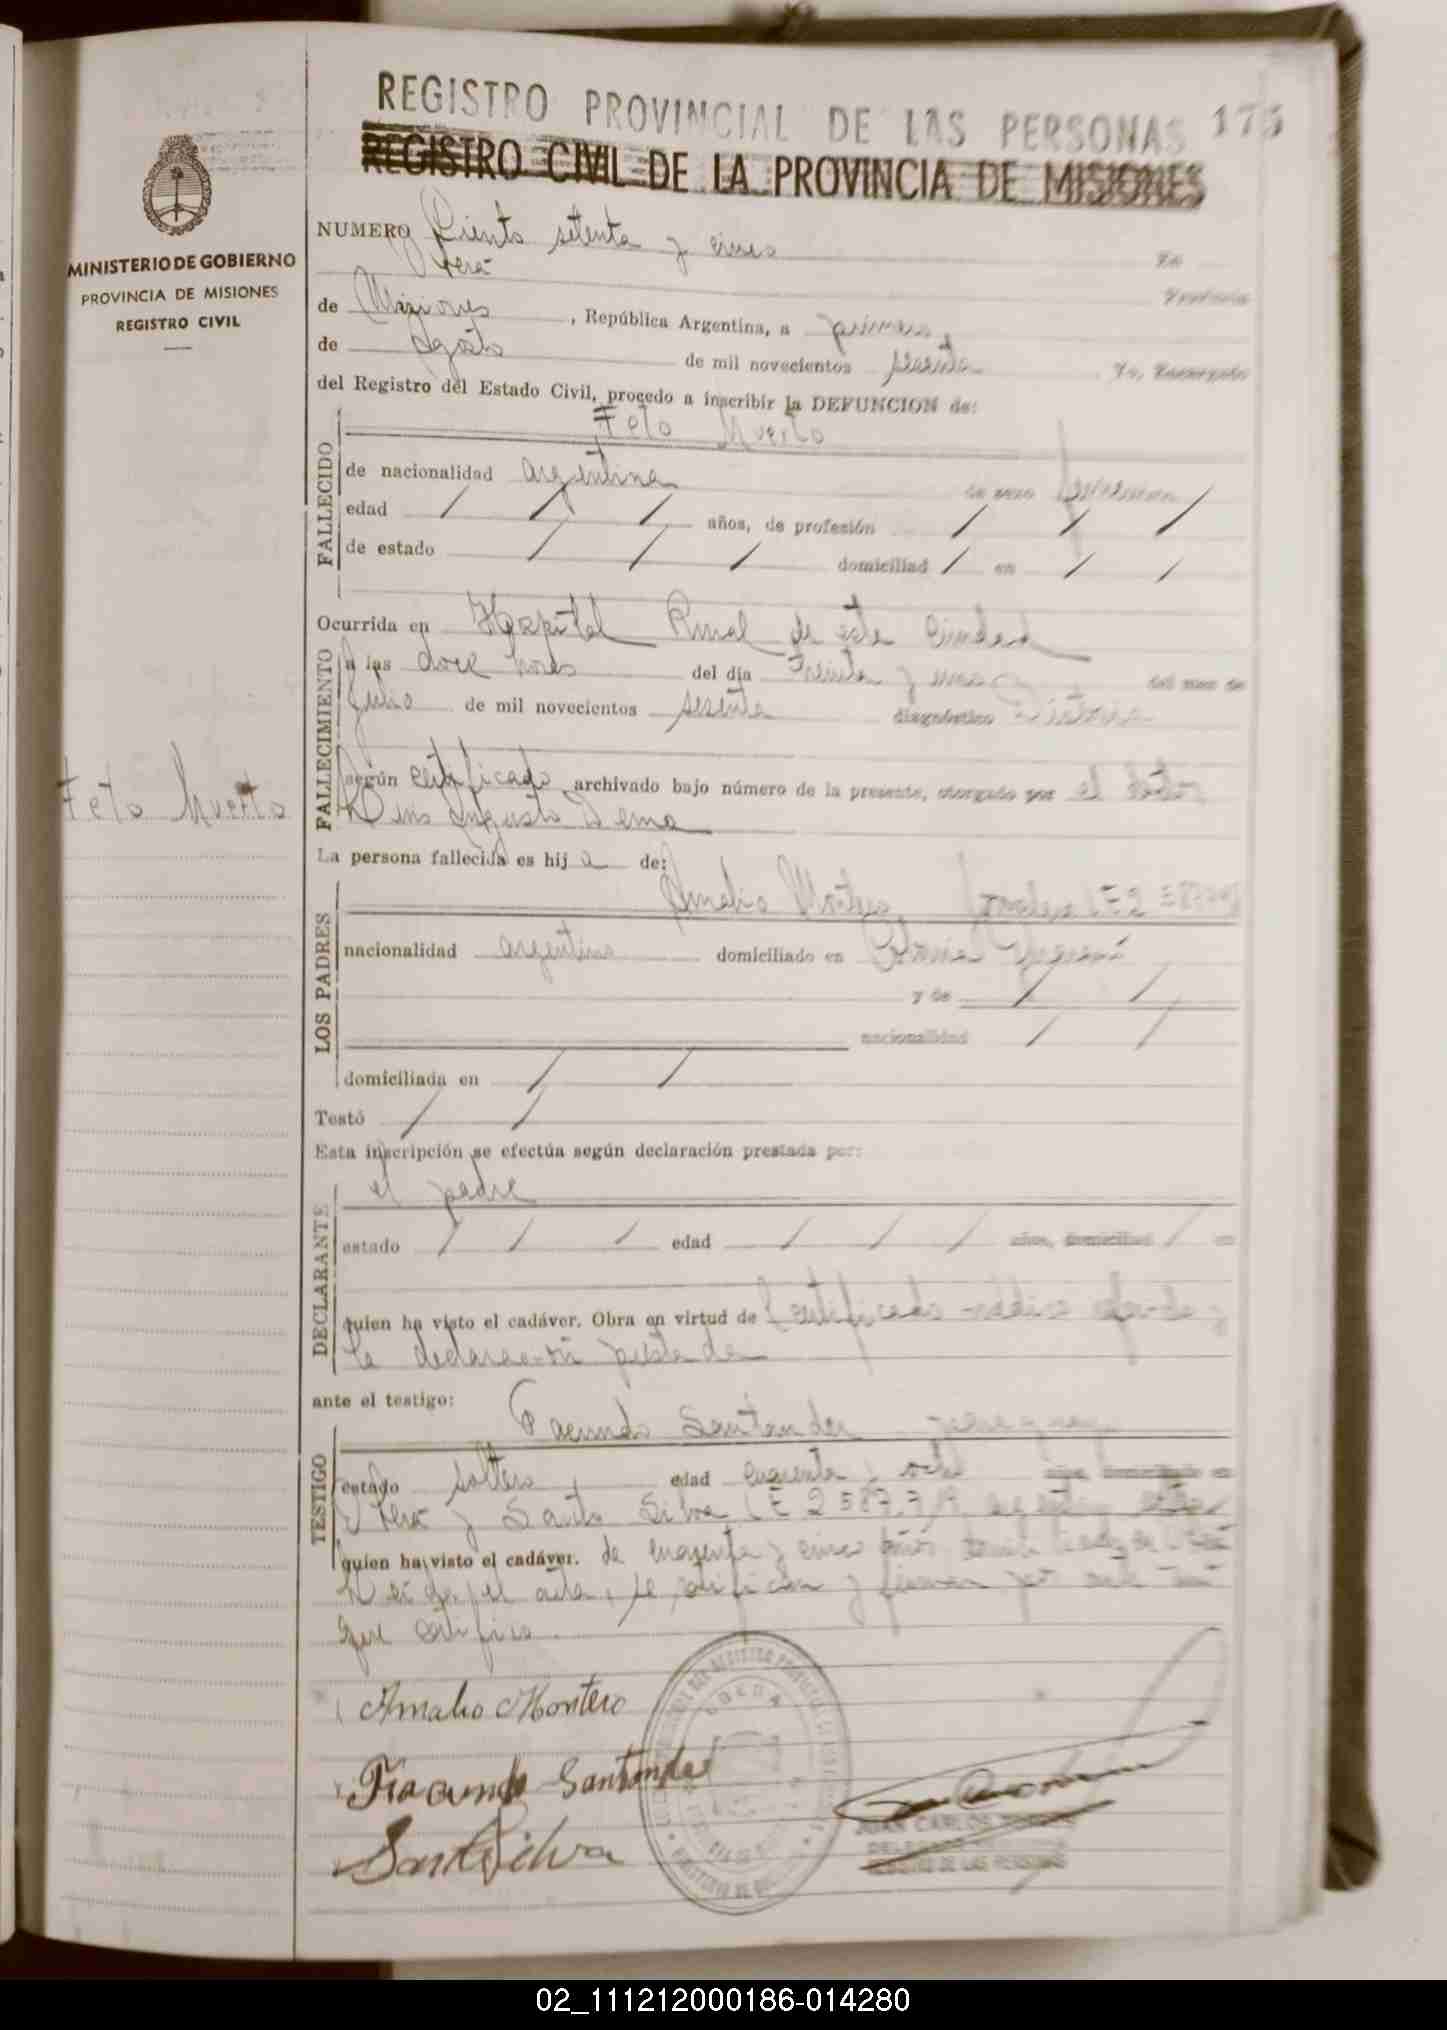 REGISTRO PROVINCIAL DE LAS PERSONAS 175
REGISTRO CIVIL DE LA PROVINCIA DE MISIONES
MINISTERIO DE GOBIERNO
PROVINCIA DE MISIONES
REGISTRO CIVIL
NUMERO Ciento setenta y cinco En
Oberá Provincia
de Misiones, República Argentina, a primero
de Agosto de mil novecientos sesenta Yo, Encargado
del Registro del Estado Civil, procedo a inscribir la DEFUNCION de:
Feto Muerto
FALLECIDO
de nacionalidad argentina de sexo femenino
edad / / / años, de profesión / / /
de estado / / / domiciliad / en / /
Ocurrida en Hospital Rural de esta Ciudad
FALLECIMIENTO
a las doce horas del día treinta y uno del mes de
Julio de mil novecientos sesenta diagnóstico
Feto Muerto
según certificado archivado bajo número de la presente, otorgado por el doctor
Augusto
La persona fallecida es hij a de:
LOS PADRES
Amalio Montero
nacionalidad argentino domiciliado en Colonia Guaraní
y de / /
nacionalidad / /
domiciliada en / /
Testó / /
Esta inscripción se efectúa según declaración prestada por:
DECLARANTE
el padre
estado / / / edad / / / años, domiciliad / en
quien ha visto el cadáver. Obra en virtud de Certificado médico y
la declaración prestada
ante el testigo:
TESTIGO
Facundo Santander
estado soltero, edad cuarenta y ocho años, domiciliado en
Oberá y Santo Silva
quien ha visto el cadáver. de cuarenta y cinco años domiciliado en Oberá
el acta, se ratifican y firman por ante mí
que certifico.
Amalio Montero
Facundo Santander
Santo Silva
JUAN CARLOS
DELEGADO
REGISTRO DE LAS PERSONAS
02_111212000186-014280